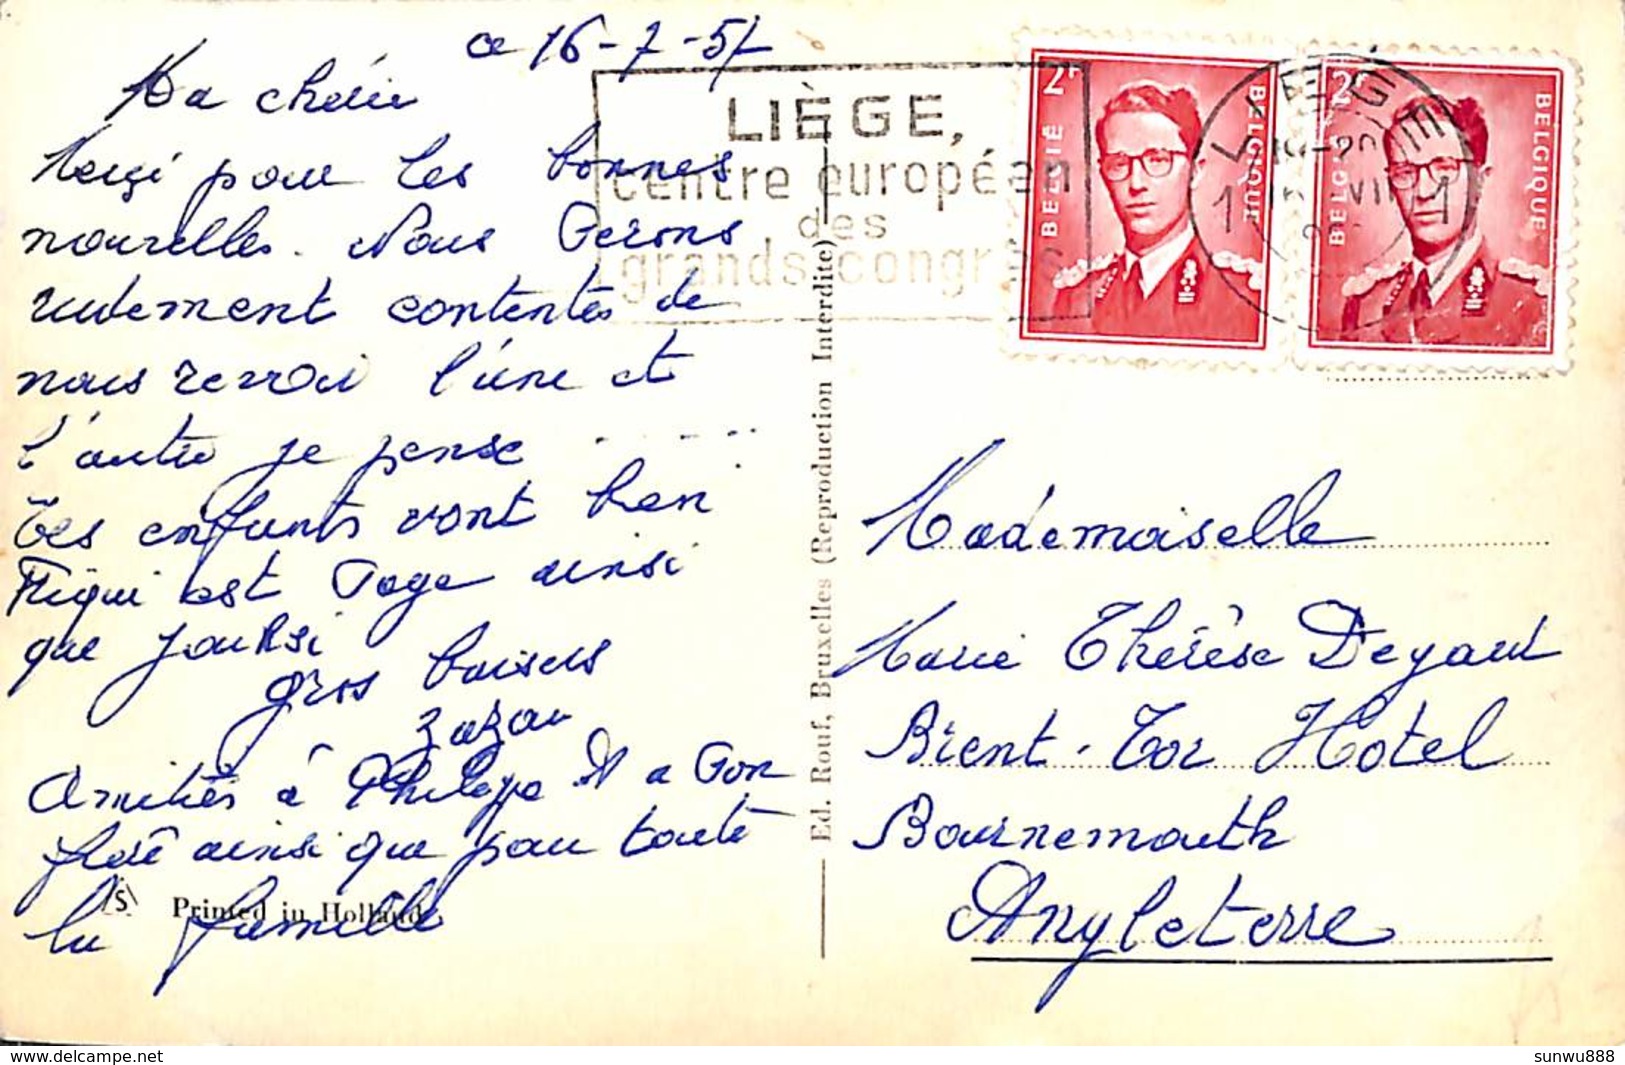 ce 16-7-57
Ma chérie
Merçi pour les bonnes
nouvelles. Nous serons
rudement contentes de
nous revoir l'une et
l'autre je pense .....
Tes enfants vont bien
Miqui est sage ainsi
que
gros baisers
Zazou
Amitiés à Philippe et a son
frère ainsi que pour toute
la famille
S Printed in Holland
Ed. Rouf, Bruxelles (Reproduction Interdite)
LIÈGE,
centre européen
des
grands congrès
2F BELGIË BELGIQUE
2F BELGIË BELGIQUE
LIEGE
1 VII 1
Mademoiselle
Marie Thérèse Deyard
Brent-Tor Hotel
Bournemouth
Angleterre
sunwu888